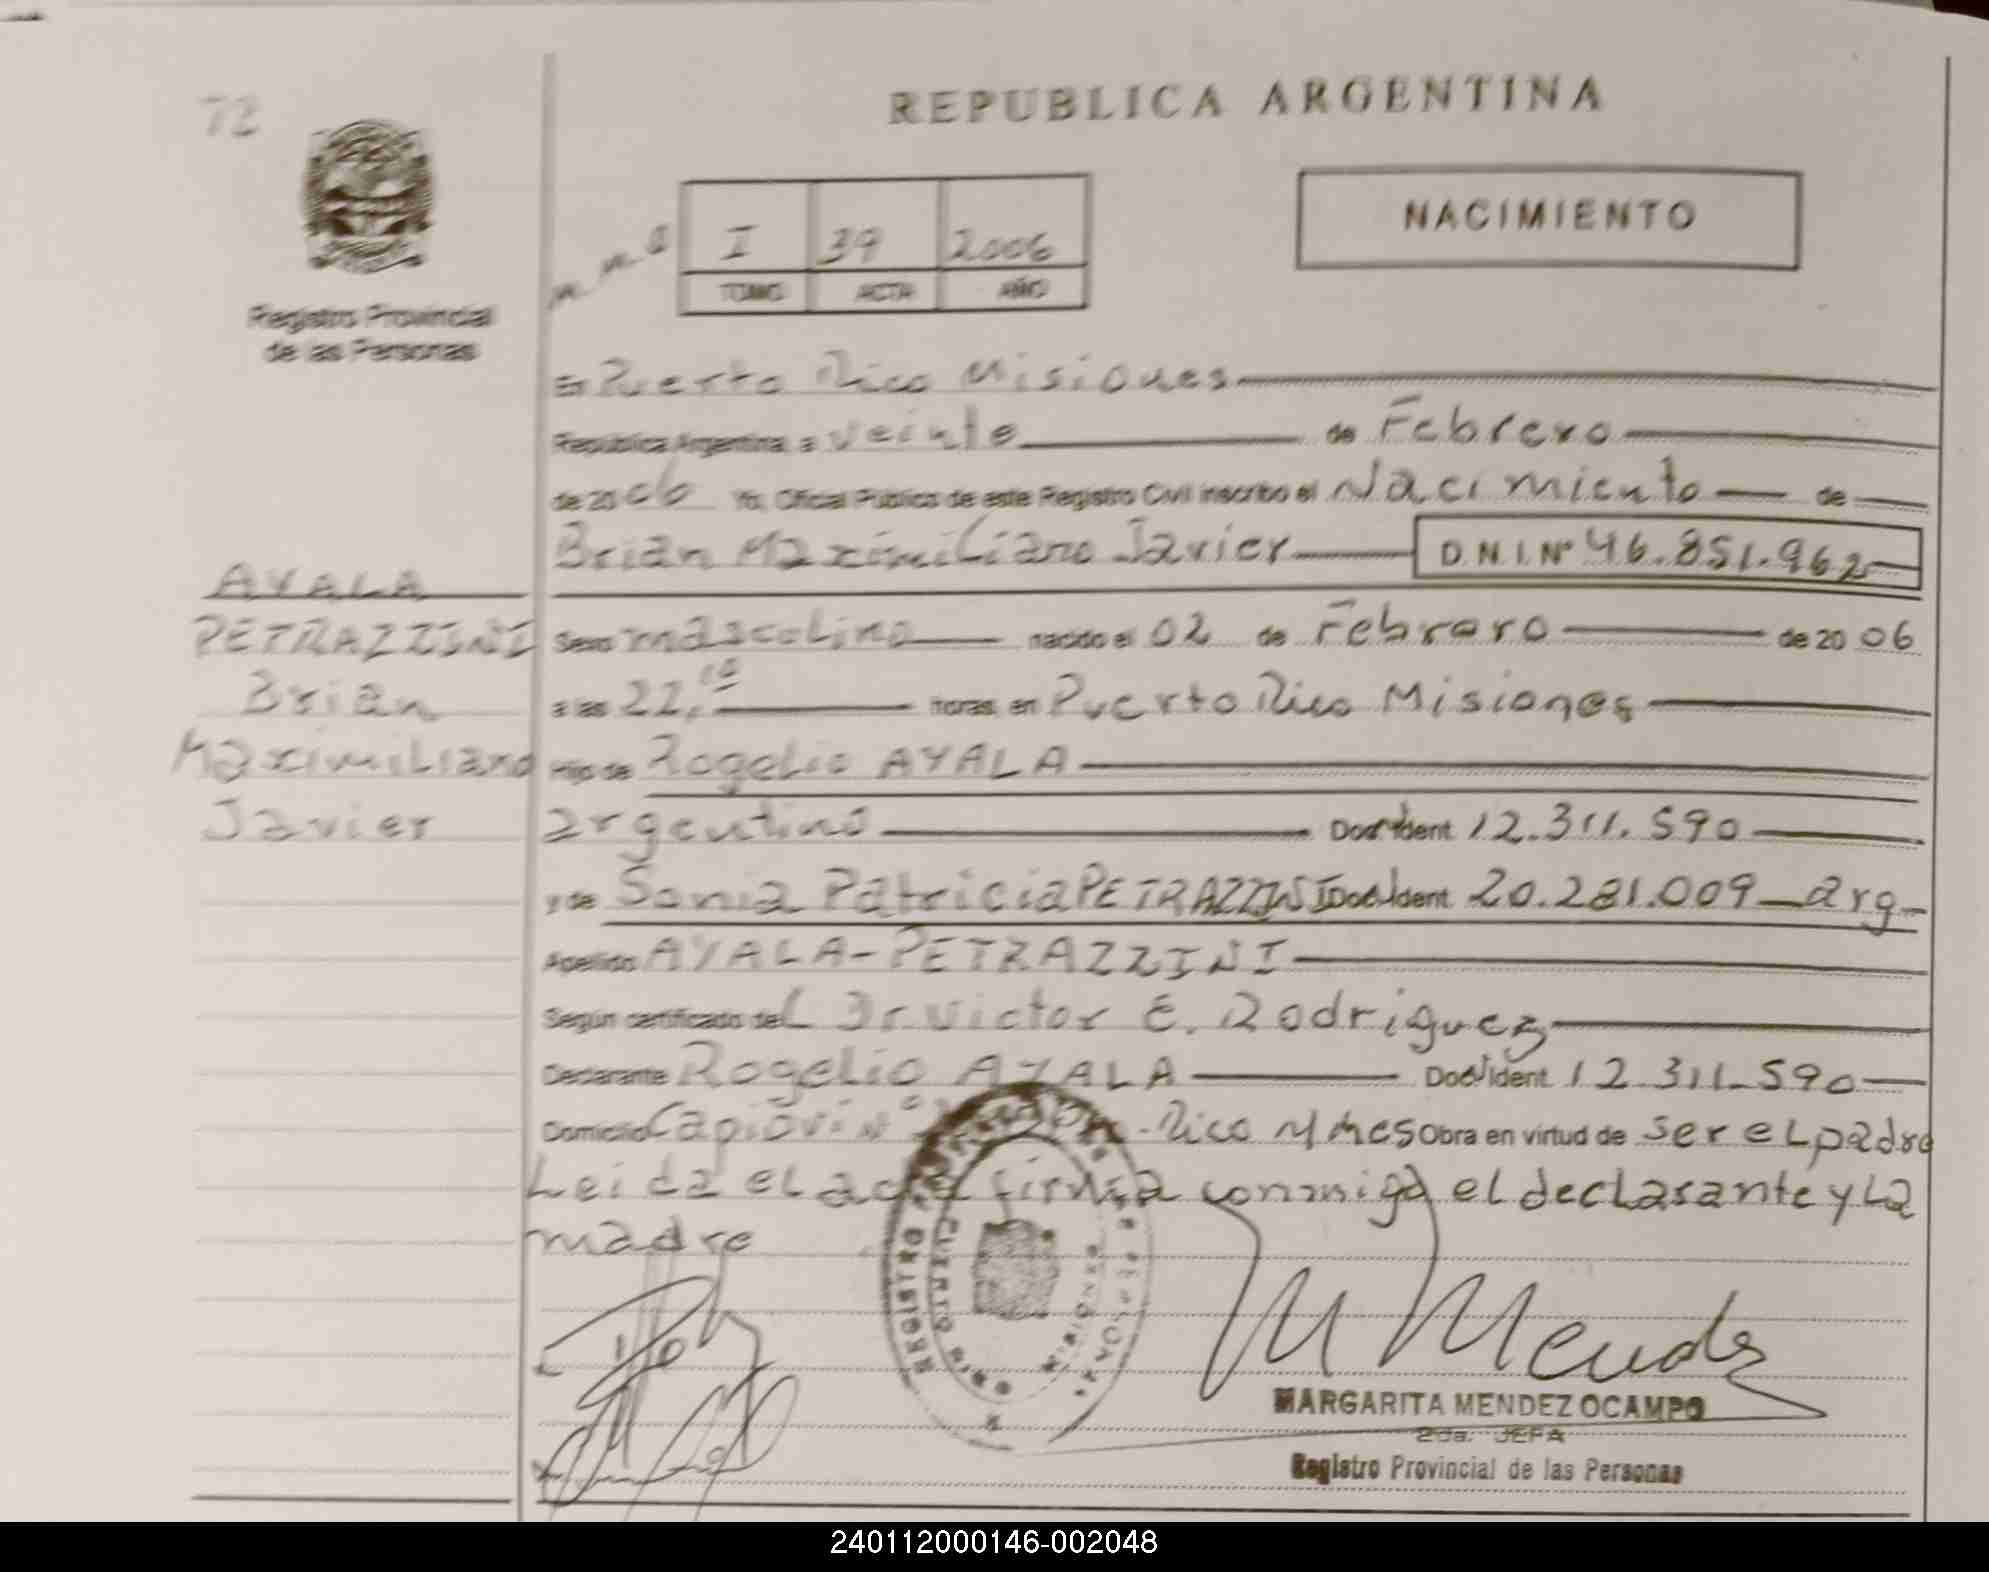 72
REPUBLICA ARGENTINA
NACIMIENTO
I 39 2006
TOMO ACTA AÑO
Registro Provincial
de las Personas
En Puerto Rico Misiones
República Argentina, a veinte de Febrero
de 2006 Yo, Oficial Público de este Registro Civil inscribo el Nacimiento de
Brian Maximiliano Javier D.N.I.Nº 46.851.962
AYALA
PETRAZZINI
Brian
Maximiliano
Javier
Sexo masculino nacido el 02 de Febrero de 2006
a las 22, horas, en Puerto Rico Misiones
Hijo de Rogelio AYALA
argentino Doc. Ident. 12.311.590
y de Sonia Patricia PETRAZZINI Doc. Ident. 20.281.009 arg
Apellido AYALA-PETRAZZINI
Según certificado del Dr. Victor E. Rodriguez
Declarante Rogelio AYALA Doc. Ident. 12.311.590
Domicilio Capiovi Nº Rico Mnes Obra en virtud de ser el padre
Leida el acta firma conmigo el declarante y la
madre
REGISTRO
MISIONES
M Mendez
MARGARITA MENDEZ OCAMPO
2da. JEFA
Registro Provincial de las Personas
240112000146-002048